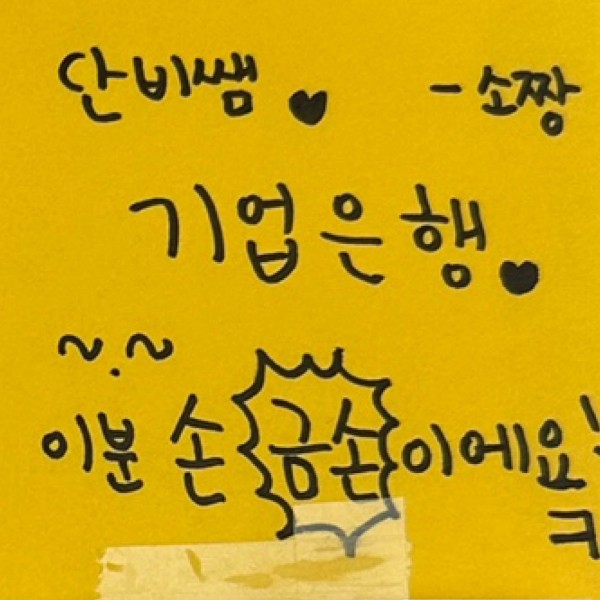 단비쌤♥ -소짱
기업은행♥
~.~
이분 손 금손이에요!